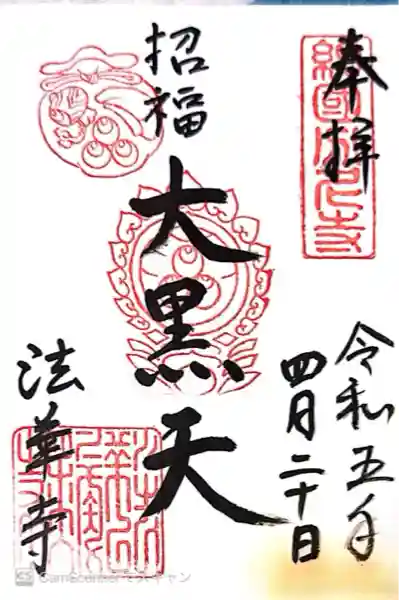 奉拝
令和五年
四月二十日
招福
大黒天
法華寺
CS CamScanner でスキャン